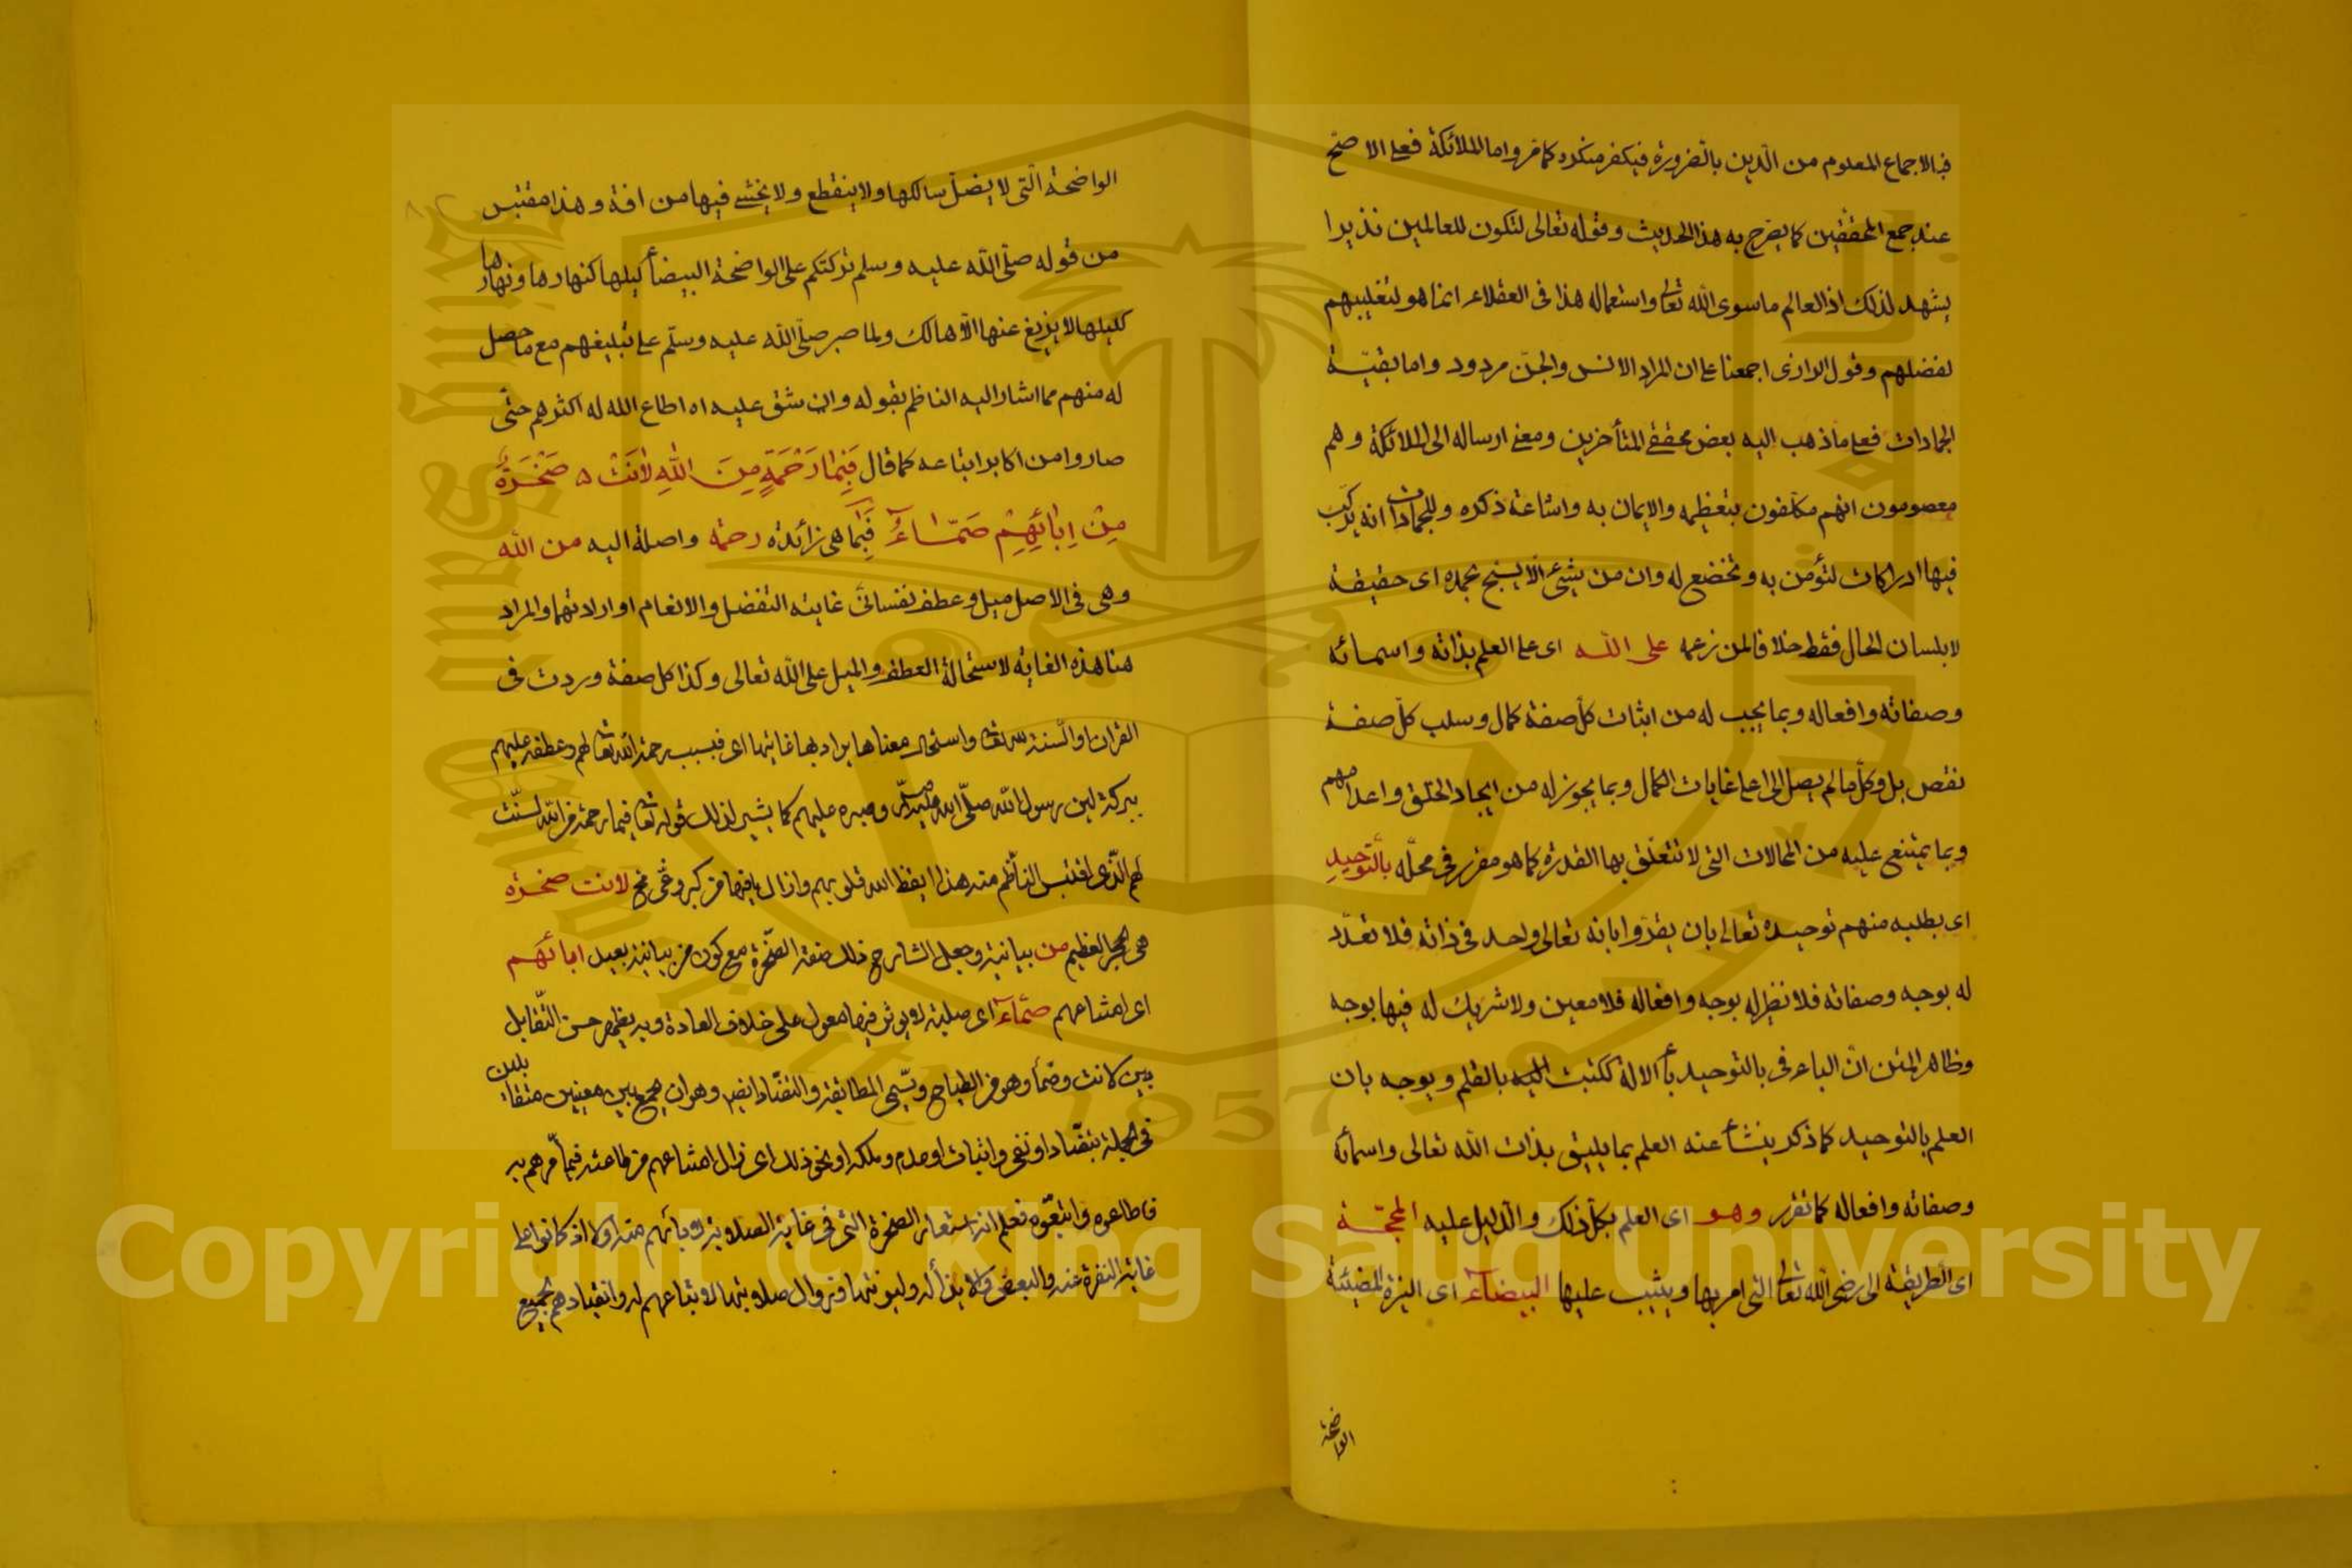 فبالاجماع المعلوم من الدين بالضرورة فيكفر منكره كما مر واما الملائكة فعلى الاصح
عند جمع المحققين كما يصرح به هذا الحديث وقوله تعالى لتكون للعالمين نذيرا
يشهد لذلك اذ العالم ما سوى الله تعالى واستعماله هذا فى العقلاء انما هو لتغليبهم
لفضلهم وقول الرازى اجمعنا على ان المراد الانس والجن مردود واما بقية
الجمادات فعلى ما ذهب اليه بعض محققى المتأخرين ومعنى ارساله الى الملائكة وهم
معصومون انهم مكلفون بتعظيمه والايمان به واشاعة ذكره وللجمادات انه يركب
فيها ادراكات لتؤمن به وتخضع له وان من شئ الا يسبح بحمده اى حقيقة
لا بلسان الحال فقط خلافا لمن زعمه على الله اى على العلم بذاته واسمائه
وصفاته وافعاله وبما يجب له من اثبات كل صفة كمال وسلب كل صفة
نقص بل وكل ما لم يصل الى اعلى غايات الكمال وبما يجوز له من ايجاد الخلق واعدامهم
وبما يمتنع عليه من المحالات التى لا تتعلق بها القدرة كما هو مقرر فى محله بالتوحيد
اى بطلبه منهم توحيده تعالى بان يقروا بانه تعالى واحد فى ذاته فلا تعدد
له بوجه وصفاته فلا نظير له بوجه وافعاله فلا معين ولا شريك له فيها بوجه
وظاهر المتن ان الباء فى بالتوحيد باء الالة ككتبت اليه بالقلم ويوجه بان
العلم بالتوحيد كما ذكر ينشأ عنه العلم بما يليق بذات الله تعالى واسمائه
وصفاته وافعاله كما تقرر وهو اى العلم بكل ذلك والدليل عليه المحجة
اى الطريقة الى رضى الله تعالى التى امر بها ويثيب عليها البيضاء اى النيرة المضيئة
الواضحة
الواضحة التى لا يضل سالكها ولا ينقطع ولا يخشى فيها من افة وهذا مقتبس
من قوله صلى الله عليه وسلم تركتكم على الواضحة البيضاء ليلها كنهارها ونهارها
كليلها لا يزيغ عنها الا هالك ولما صبر صلى الله عليه وسلم على تبليغهم مع ما حصل
له منهم مما اشار اليه الناظم بقوله وان شق عليه اه اطاع الله له اكثرهم حتى
صاروا من اكابر اتباعه كما قال فَبِمَا رَحْمَةٍ مِنَ اللهِ لَانَتْ ه صَخْرَةٌ
مِنْ اِبَائِهِمْ صَمَّاءُ فَبِمَا هى زائدة رحمة واصلة اليه من الله
وهى فى الاصل ميل وعطف نفسانى غايته التفضل والانعام او ارادتهما والمراد
هنا هذه الغاية لاستحالة العطف والميل على الله تعالى وكذا كل صفة وردت فى
القران او السنة لله تعالى واستحال معناها يراد بها غايتها اى فبسبب رحمة الله تعالى لهم وعطفه عليهم
ببركة لين رسول الله صلى الله عليه وسلم وصبره عليهم كما يشير لذلك قوله تعالى فبما رحمة من الله لنت
لهم الذى اقتبس الناظم منه هذا ايقظ الله قلوبهم وازال ما فيها من كبر وغى فح لانت صخرة
هى الحجر العظيم من بيانية وجعل الشارح ذلك صفة الصخرة مع كون من بيانية بعيد ابائهم
اى امتناعهم صماء اى صلبة لا يؤثر فيها معول على خلاف العادة وبه يظهر حسن التقابل
بين لانت وصما وهو من الطباق ويسمى المطابقة والتضاد ايضا وهو ان يجمع بين معنيين متقابلين
فى الجملة بتضاد او نفى واثبات او عدم وملكة او نحو ذلك اى زال امتناعهم من طاعته فيما امرهم به
فاطاعوه واتبعوه فعلم انه استعار الصخرة التى فى غاية الصلابة لابائهم منه اولا اذ كانوا على
غاية النفرة عنه والبغض والايذاء له وليونتها وزوال صلابتها لاتباعهم له وانقيادهم لجميع
Copyright © King Saud University
King Saud University
1957